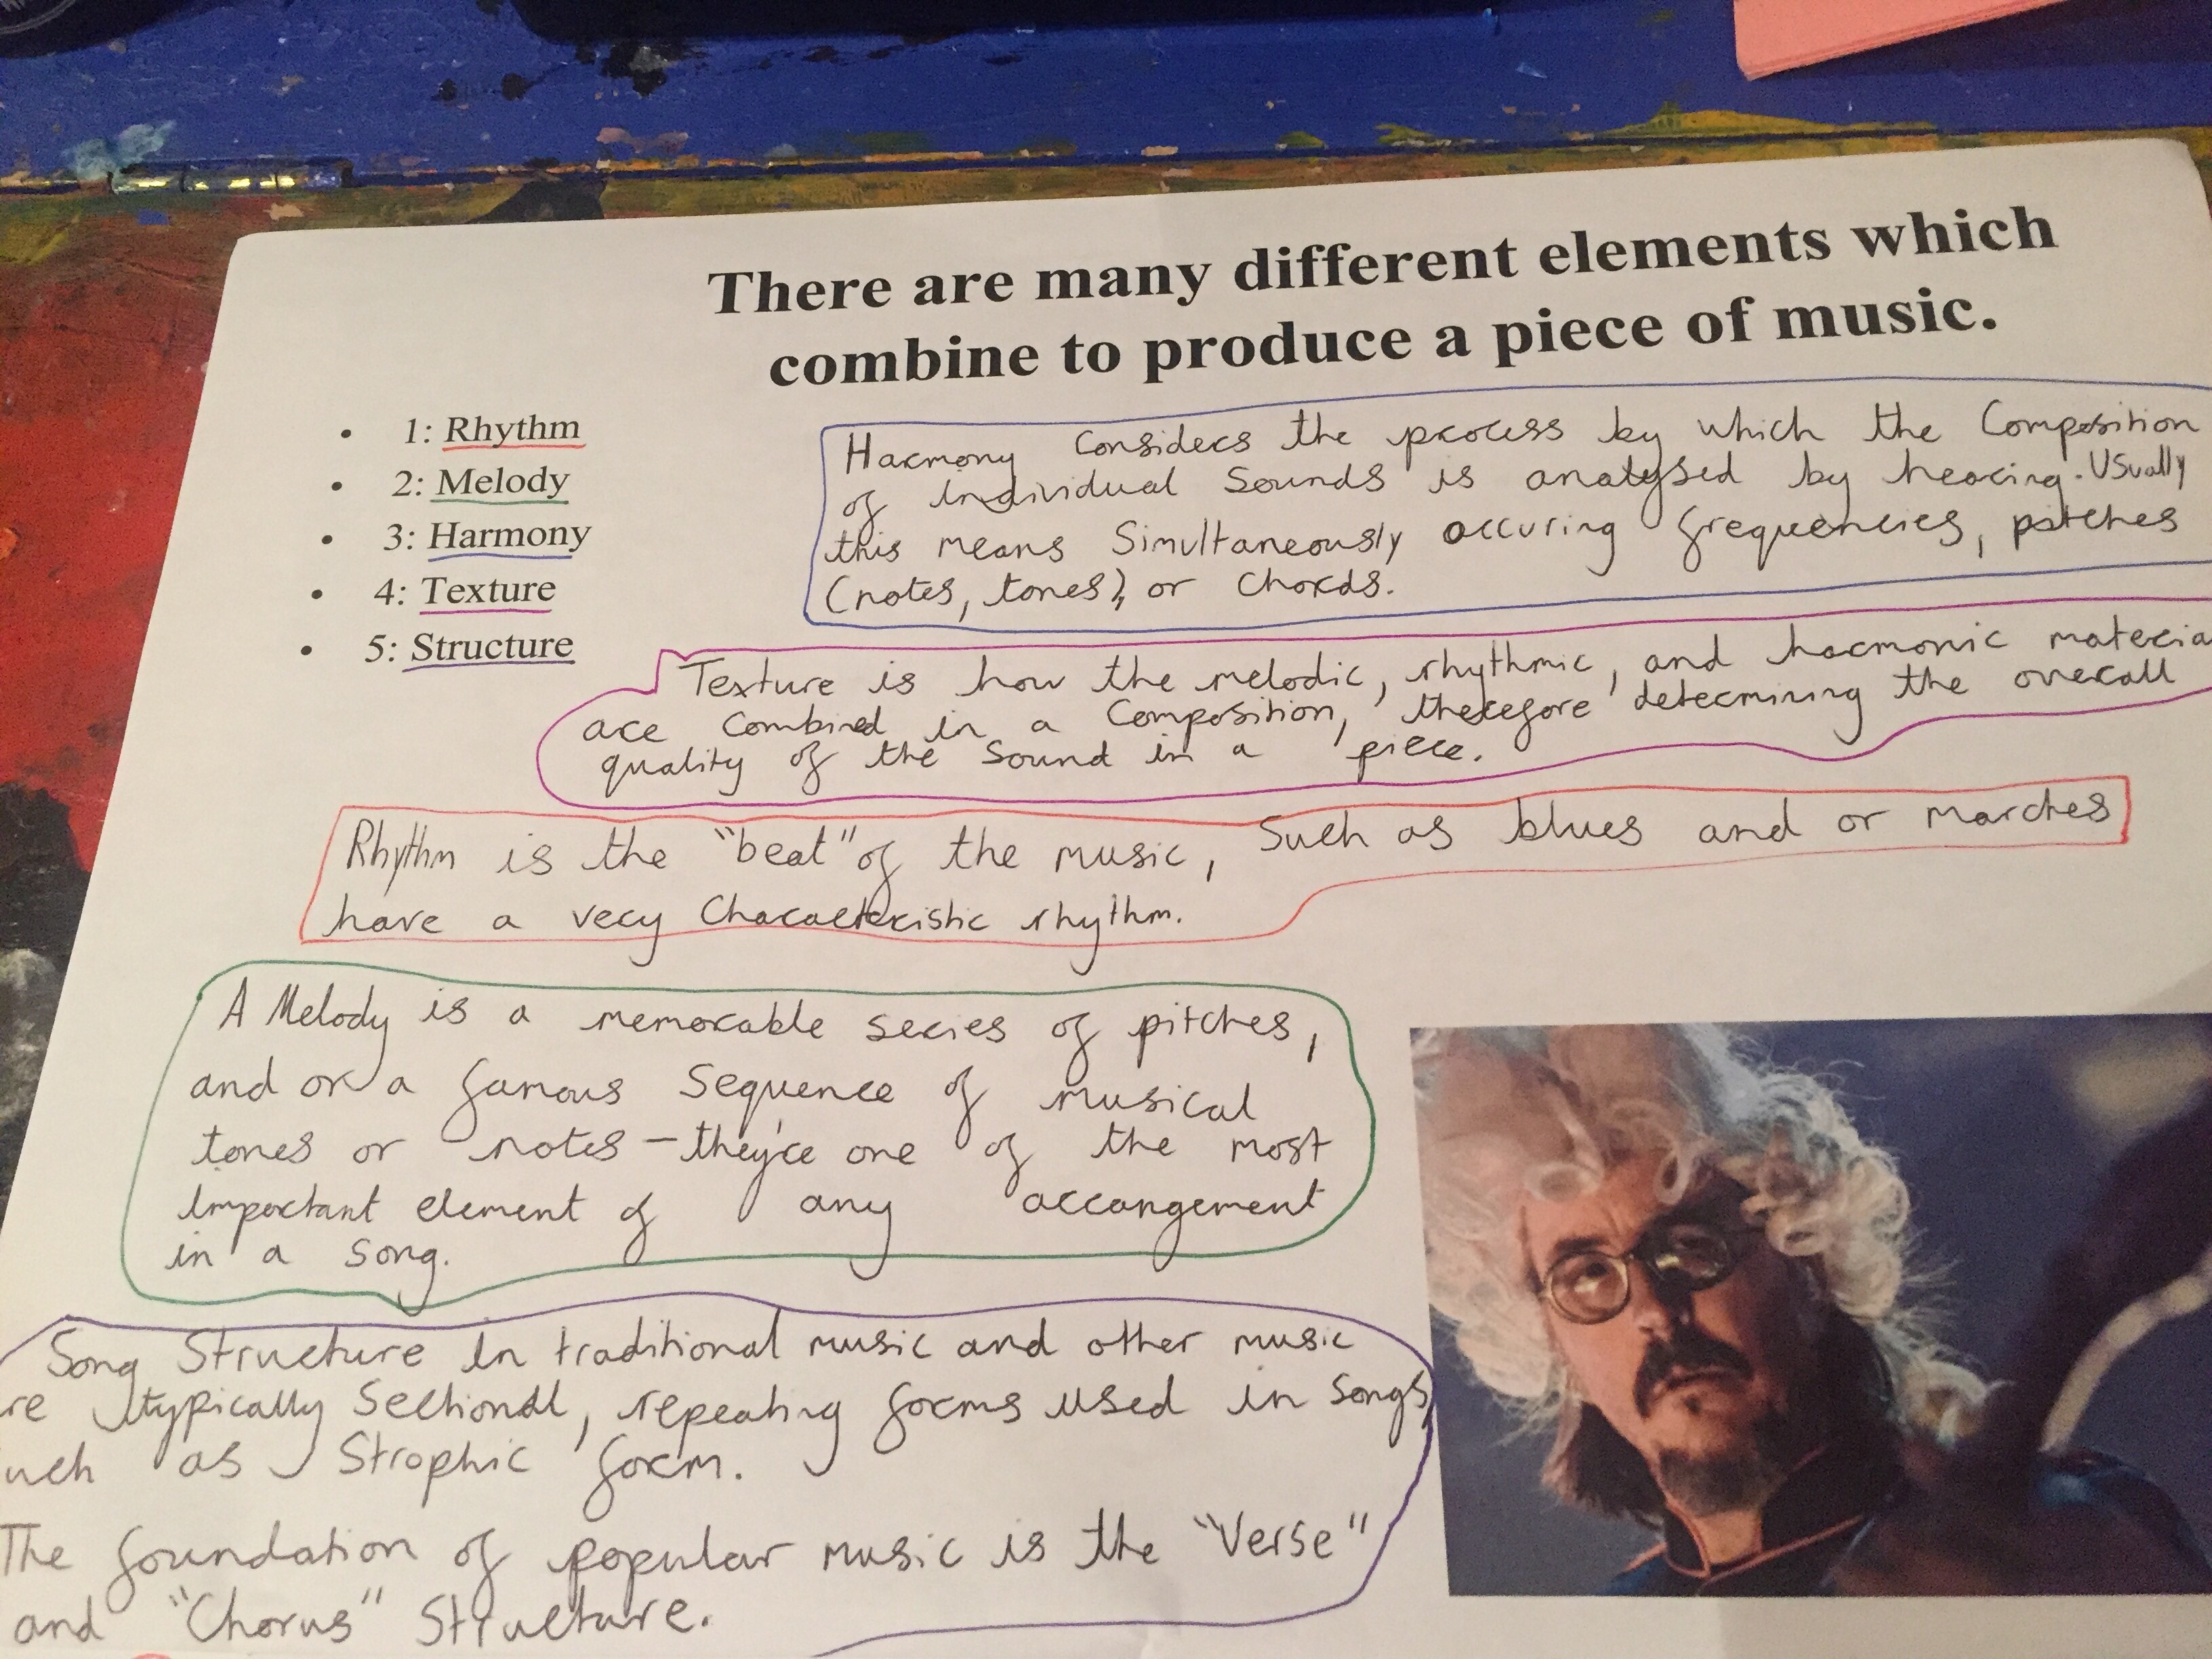 There are many different elements which
combine to produce a piece of music.
• 1: Rhythm
• 2: Melody
• 3: Harmony
• 4: Texture
• 5: Structure
Harmony Considers the process by which the Composition
of individual Sounds is analysed by hearing. Usually
this means Simultaneously occuring frequencies, pitches
(notes, tones), or Chords.
Texture is how the melodic, rhythmic, and harmonic materia
are Combined in a Composition, therefore determining the overall
quality of the Sound in a piece.
Rhythm is the "beat" of the music, Such as blues and or marches
have a very Characteristic rhythm.
A Melody is a memorable series of pitches,
and or a famous Sequence of musical
tones or notes - they're one of the most
important element of any arrangement
in a song.
Song Structure in traditional music and other music
re typically Sectional, repeating forms used in Songs,
uch as Strophic form.
The foundation of popular music is the "Verse"
and "Chorus" Structure.